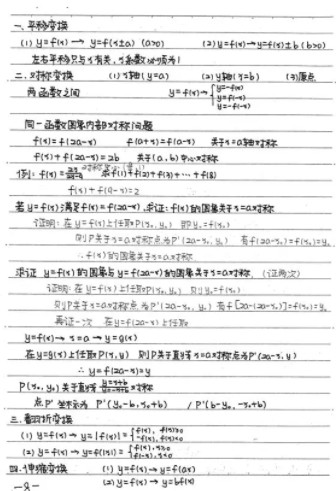 一、平移变换
(1) y=f(x) → y=f(x±a) (a>0) (2) y=f(x)→y=f(x)±b (b>0)
左右平移只与x有关，x系数必须为1
二、对称变换 (1) x轴 (y=0) (2) y轴 (x=0) (3)原点
两函数之间 y=f(x)→ { y=-f(x) y=f(-x) y=-f(-x)
同一函数图象内部对称问题
f(x)=f(2a-x) f(a+x)=f(a-x) 关于x=a轴对称
f(x)+f(2a-x)=2b 关于(a,b)中心对称
例: f(x)= 求f(1)+f(2)+f(3)+…+f(8)
f(x)+f(9-x)=2
若y=f(x)满足f(x)=f(2a-x),求证:f(x)的图象关于x=a对称
证明: 在y=f(x)上任取P(x₀,y₀) 即y₀=f(x₀)
则P关于x=a对称点为P'(2a-x₀,y₀) 有f(2a-x₀)=f(x₀)=y₀
∴f(x)的图象关于x=a对称
求证 y=f(x)的图象与y=f(2a-x)的图象关于x=a对称. (证两次)
证明: 在y=f(x)上任取P(x₀,y₀) 则y₀=f(x₀)
则P关于x=a对称点为P'(2a-x₀,y₀) 有f[2a-(2a-x₀)]=f(x₀)=y₀
再证一次 在y=f(2a-x)上任取
y=f(x)→ x=a → y=g(x)
在y=g(x)上任取P(x,y) 则P关于直线x=a对称点为P'(2a-x,y)
∴ y=f(2a-x)=y
P(x₀,y₀)关于直线 y=x+b y=-x+b 对称
点P'坐标为 P'(y₀-b,x₀+b) / P'(b-y₀,-x₀+b)
三、翻折变换
(1) y=f(x)→y=|f(x)|= { f(x), f(x)≥0 -f(x), f(x)<0
(2) y=f(x)→y=f(|x|)= { f(x), x≥0 f(-x), x<0
四、伸缩变换 (1) y=f(x)→y=f(ax)
(2) y=f(x)→y=bf(x)
-8-